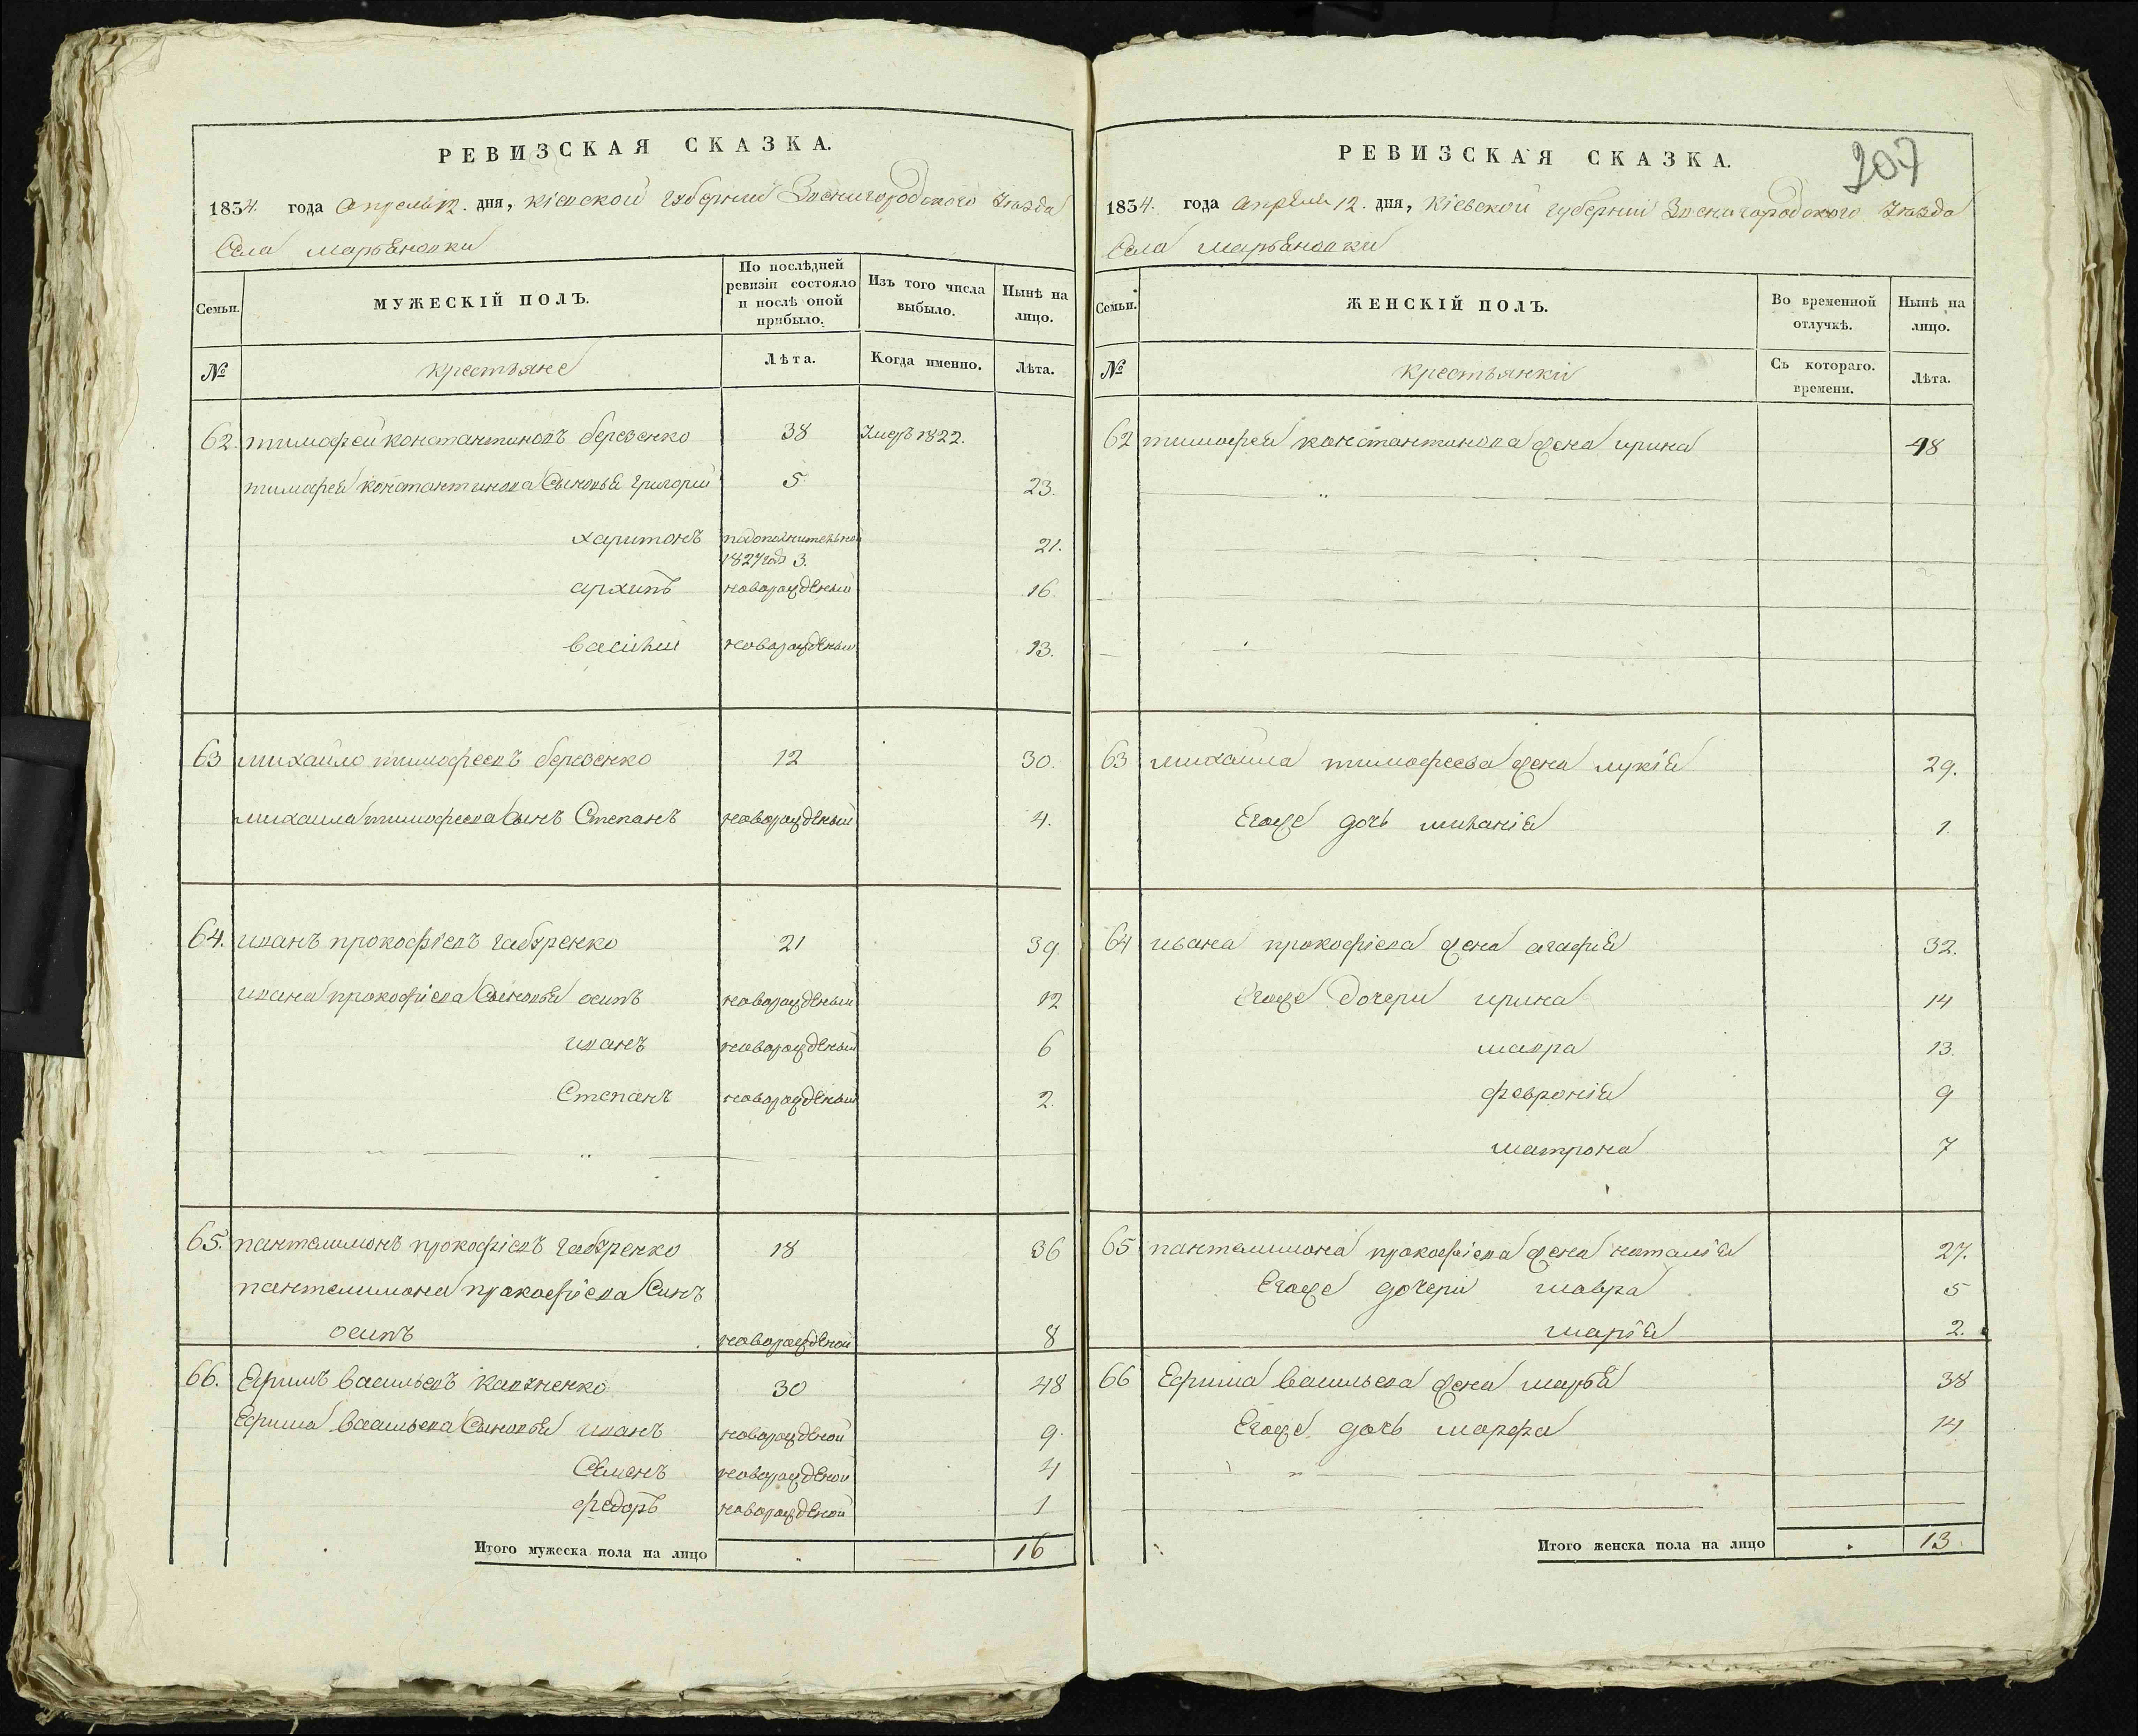 РЕВИЗСКАЯ СКАЗКА.
1834. года Апреля 12. дня, Кіевской губерніи Звенигородского Уезда
Села Марьяновки
Семьи. МУЖЕСКІЙ ПОЛЪ. По послѣдней ревизіи состояло и послѣ оной прибыло. Изъ того числа выбыло. Нынѣ на лицо.
№ крестьяне Лѣта. Когда именно. Лѣта.
62. тимофей константиновъ березенко 38 Умеръ 1822.
тимофея константинова Сыновья григорий 5 23.
харитонъ подополнительной 1827 год 3. 21.
архипъ новорожденый 16.
василий новорожденый 13.
63 михайло тимофеевъ березенко 12 30.
михаила тимофеева Сынъ Степанъ новорожденый 4.
64. иванъ прокофіевъ габуренко 21 39.
ивана прокофиева Сыновья осипъ новорожденый 12
иванъ новорожденый 6
Степанъ новорожденый 2.
65. пантелимонъ прокофіевъ габуренко 18 36
пантелимона прокофиева Синъ
осипъ новорожденой 8
66. Ефимъ васильевъ 30 48
Ефима васильева Сыновья иванъ новорожденой 9.
Семенъ новорожденой 4
федоръ новорожденой 1
Итого мужеска пола на лицо 16
РЕВИЗСКАЯ СКАЗКА.
207
1834. года апреля 12. дня, Кіевской губерніи Звенигородского Уезда
Села Марьяновки
Семьи. ЖЕНСКІЙ ПОЛЪ. Во временной отлучкѣ. Нынѣ на лицо.
№ крестьянки Съ котораго. времени. Лѣта.
62 тимофея константинова жена ирина 48
63 михаила тимофеева жена лукія 29.
Егоже дочь миланія 1.
64 ивана прокофіева жена агафия 32.
Егоже Дочери ирина 14
мавра 13.
февронія 9
матрона 7
65 пантелимона прокофіева жена наталія 27.
Егоже дочери мавра 5
марія 2.
66 Ефима васильева жена марья 38
Егоже дочь марфа 14
Итого женска пола на лицо 13.